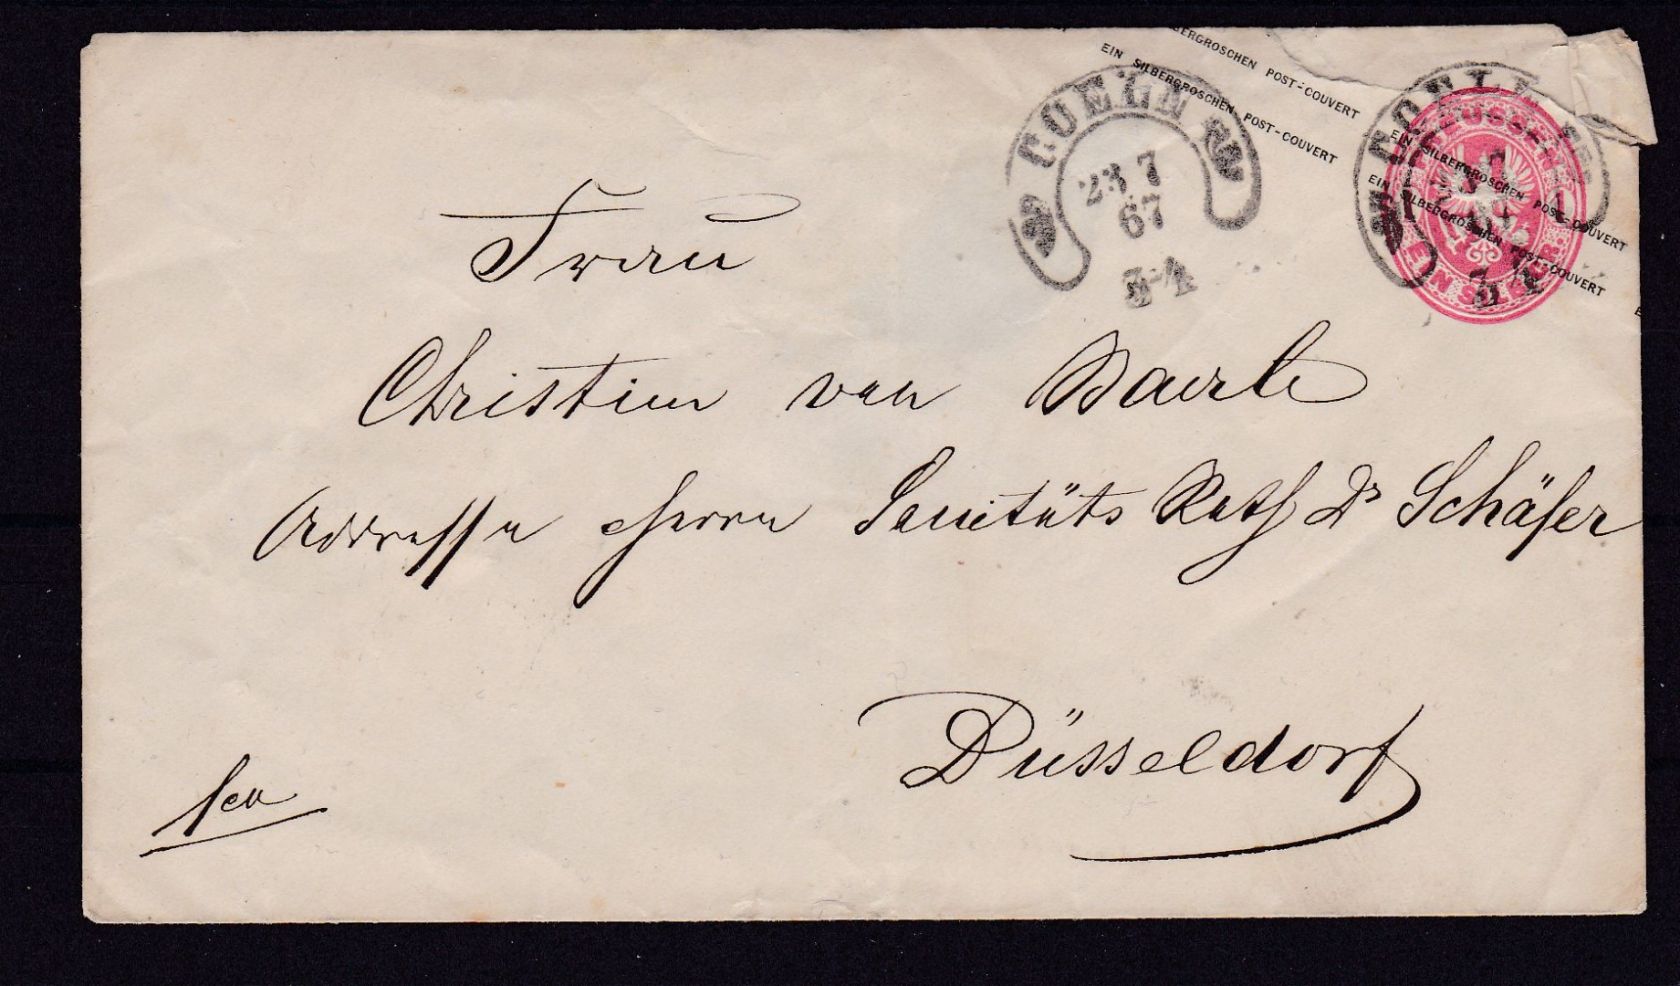 SILBERGROSCHEN POST-COUVERT
EIN SILBERGROSCHEN POST-COUVERT
EIN SILBERGROSCHEN POST-COUVERT
EIN SILBERGROSCHEN POST-COUVERT
COELN
23 7
67
3-4
COELN
3-4
PREUSSEN
EIN SILBERGR.
Frau
Christine von Baerle
Addresse Herrn Sanitäts Rath Dr Schäfer
Düsseldorf